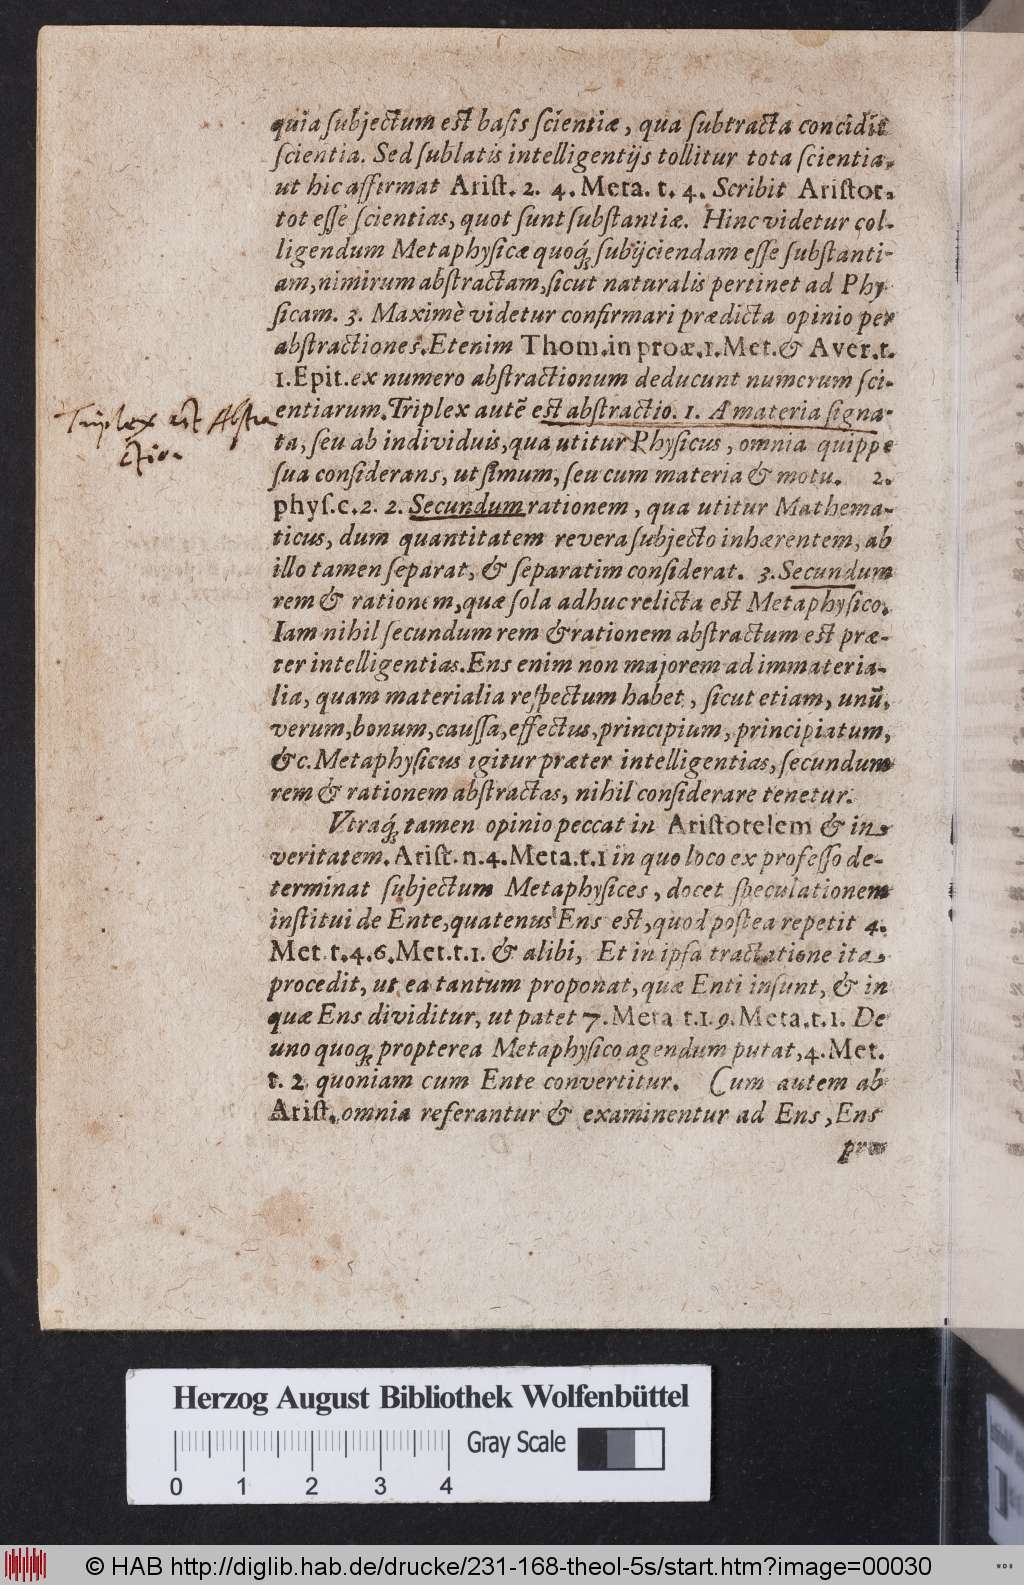 quia ſubjectum est baſis ſcientiæ, qua ſubtracta concidit
ſcientia. Sed ſublatis intelligentijs tollitur tota ſcientia,
ut hic affirmat Ariſt. 2. 4. Meta. t. 4. Scribit Ariſtot.
tot eſſe ſcientias, quot ſunt ſubſtantiæ. Hinc videtur col-
ligendum Metaphyſicæ quoq́; ſubijciendam eſſe ſubſtanti-
am, nimirum abſtractam, ſicut naturalis pertinet ad Phy
ſicam. 3. Maximè videtur confirmari prædicta opinio per
abſtractiones. Etenim Thom. in proæ. 1. Met. & Aver. t.
1. Epit. ex numero abſtractionum deducunt numerum ſci-
entiarum. Triplex autẽ est abſtractio. 1. A materia ſigna-
ta, ſeu ab individuis, qua utitur Phyſicus, omnia quippe
ſua conſiderans, ut ſimum, ſeu cum materia & motu. 2.
phyſ. c. 2. 2. Secundum rationem, qua utitur Mathema-
ticus, dum quantitatem revera ſubjecto inhærentem, ab
illo tamen ſeparat, & ſeparatim conſiderat. 3. Secundum
rem & rationem, quæ ſola adhuc relicta est Metaphyſico.
Iam nihil ſecundum rem & rationem abſtractum est præ-
ter intelligentias. Ens enim non majorem ad immateria-
lia, quam materialia reſpectum habet, ſicut etiam, unũ,
verum, bonum, cauſſa, effectus, principium, principiatum,
&c. Metaphyſicus igitur præter intelligentias, ſecundum
rem & rationem abſtractas, nihil conſiderare tenetur.
Vtraq́; tamen opinio peccat in Ariſtotelem & in
veritatem. Ariſt. n. 4. Meta. t. 1 in quo loco ex profeſſo de-
terminat ſubjectum Metaphyſices, docet ſpeculationem
inſtitui de Ente, quatenus Ens est, quod poſtea repetit 4.
Met. t. 4. 6. Met. t. 1. & alibi, Et in ipſa tractatione ita
procedit, ut ea tantum proponat, quæ Enti inſunt, & in
quæ Ens dividitur, ut patet 7. Meta t. 1. 9. Meta. t. 1. De
uno quoq; propterea Metaphyſico agendum putat, 4. Met.
t. 2 quoniam cum Ente convertitur. Cum autem ab
Ariſt. omnia referantur & examinentur ad Ens, Ens
præ
Triplex est Abstra
ctio.
Herzog August Bibliothek Wolfenbüttel
Gray Scale
0 1 2 3 4
© HAB http://diglib.hab.de/drucke/231-168-theol-5s/start.htm?image=00030